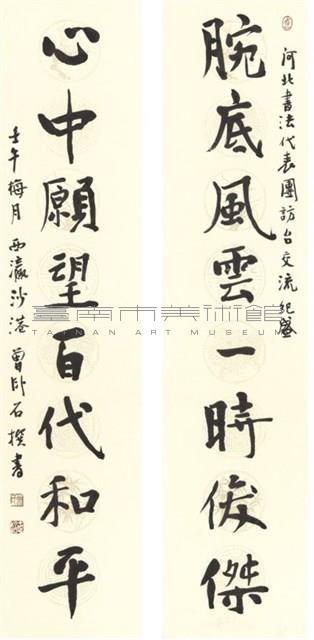 河北書法代表團訪台交流紀盛
腕底風雲一時俊傑
心中願望百代和平
壬午梅月西瀛沙港曾卧石撰書
臺南市美術館
TAINAN ART MUSEUM